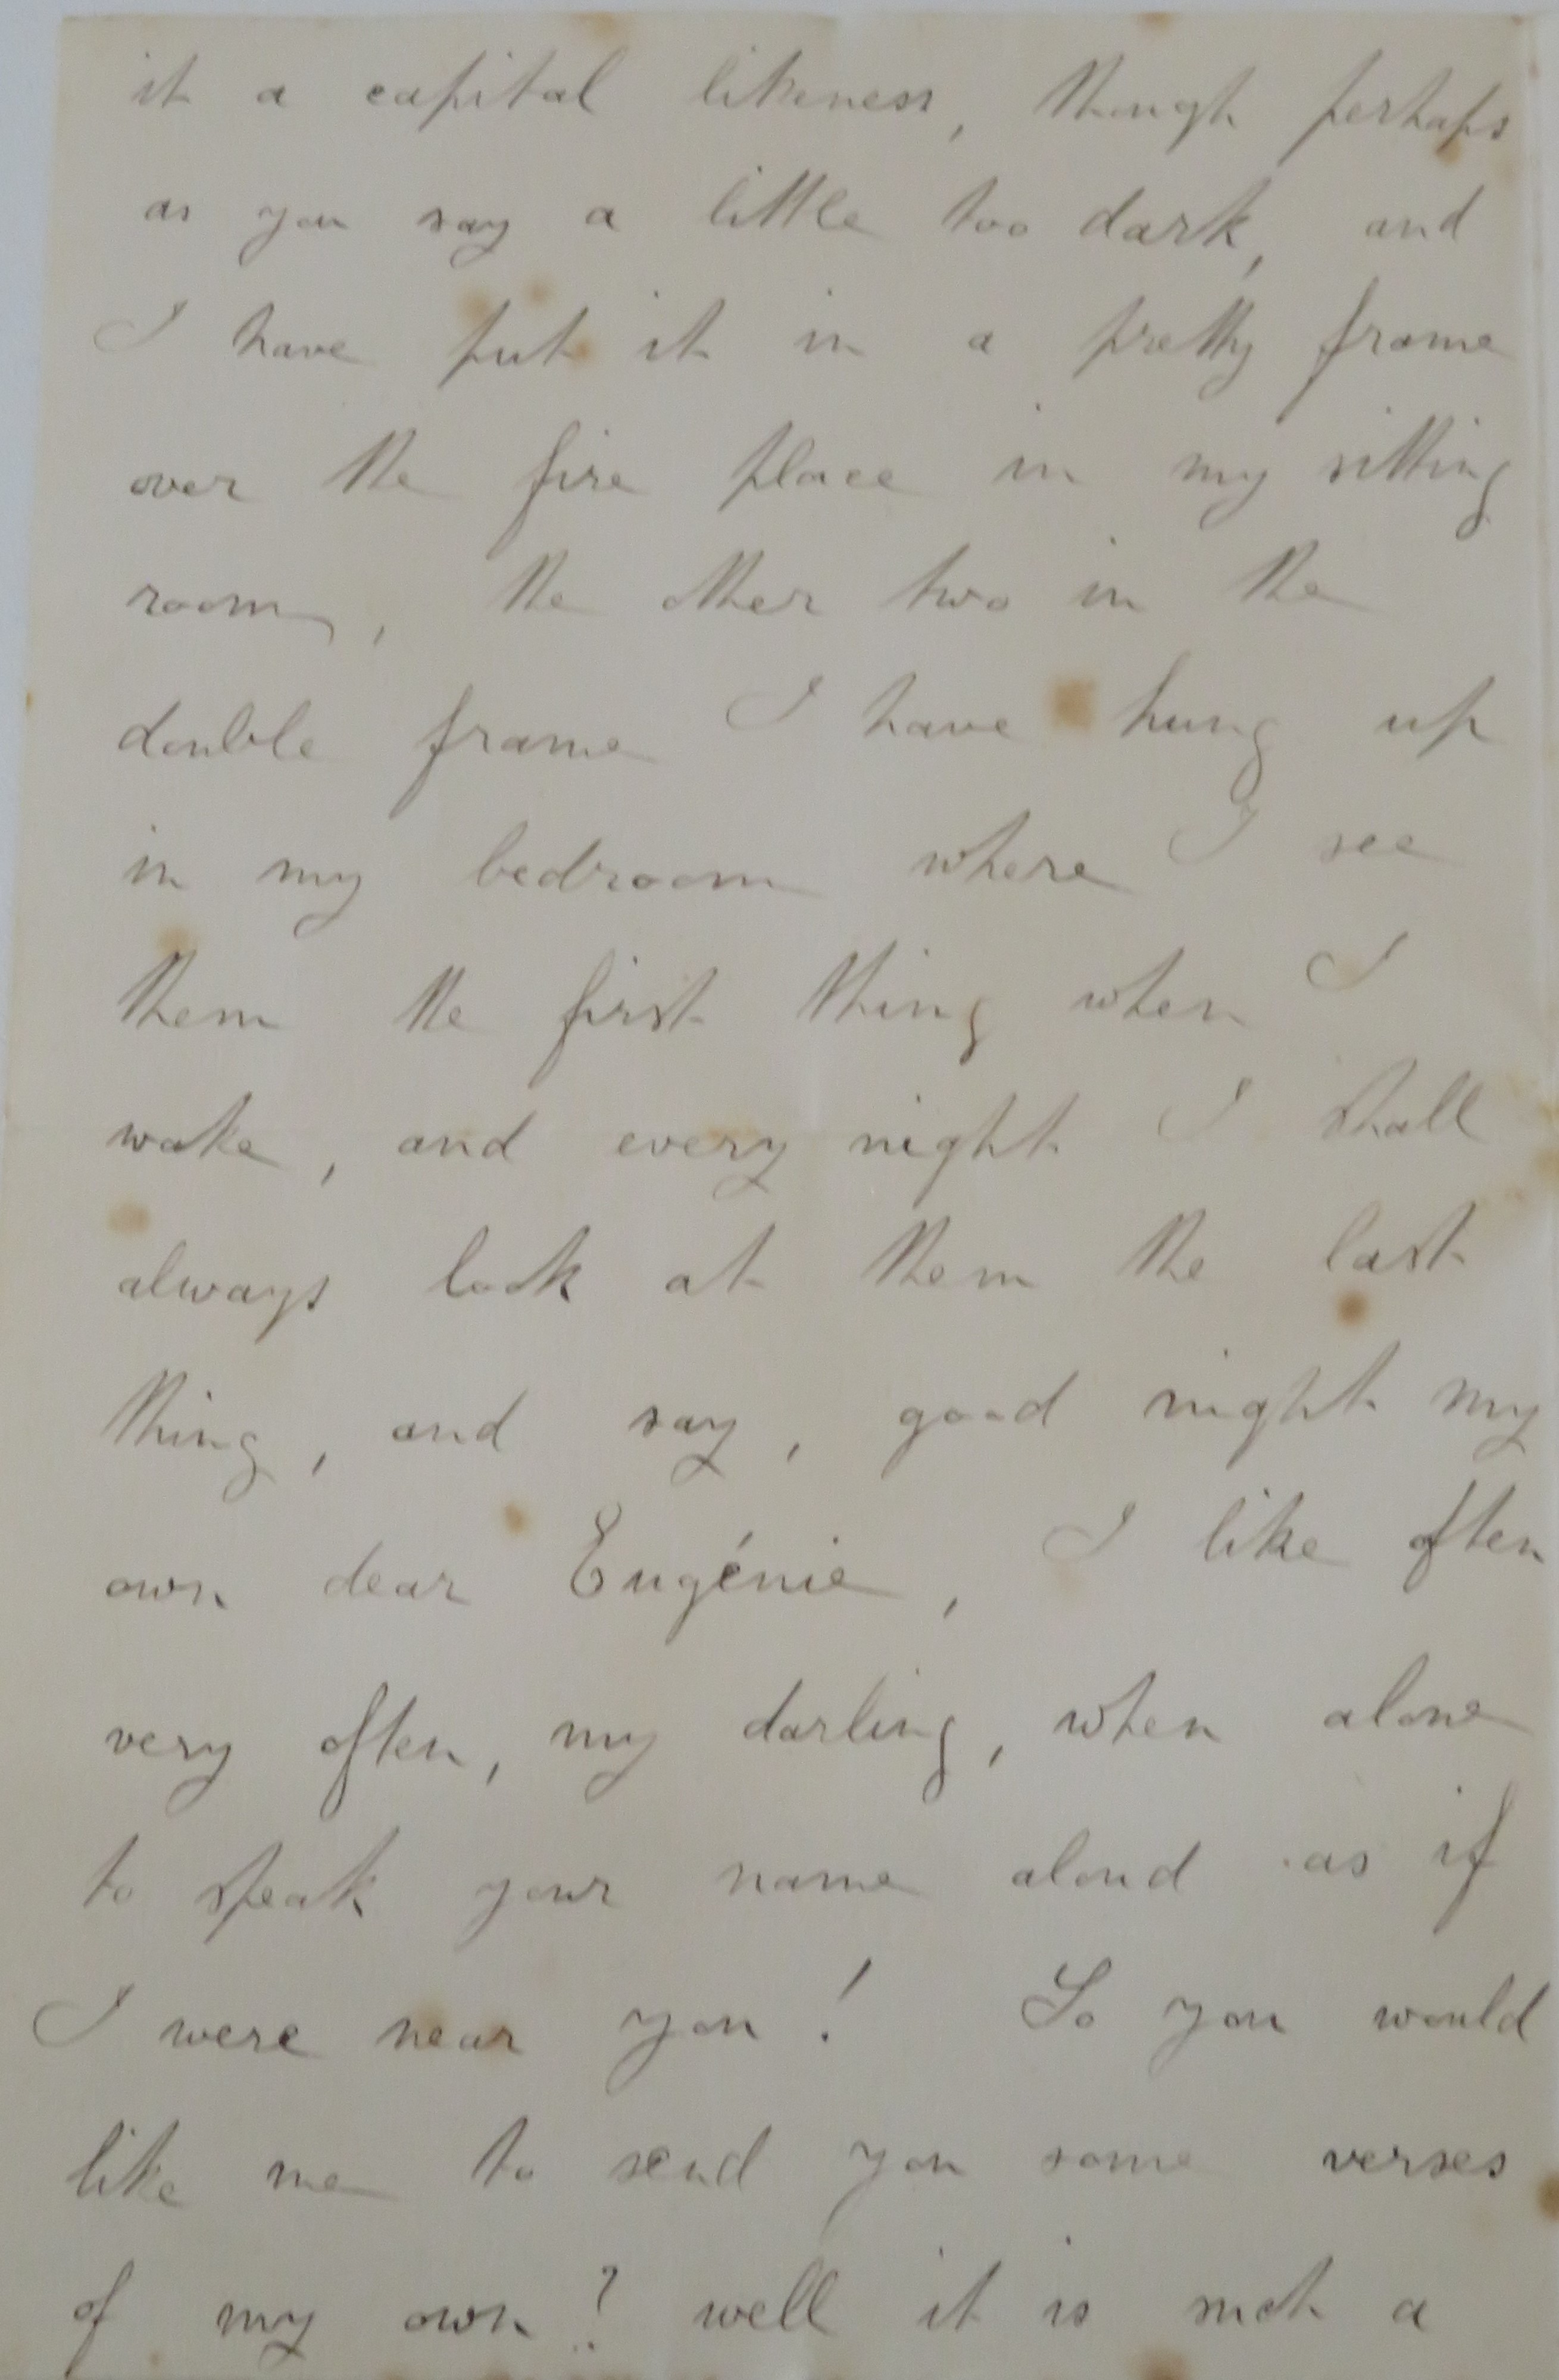 it a capital likeness, though perhaps
as you say a little too dark, and
I have put it in a pretty frame
over the fire place in my sitting
room, the other two in the
double frame I have hung up
in my bedroom where I see
them the first thing when I
wake, and every night I shall
always look at them the last
thing, and say, good night my
own dear Eugénie, I like often
very often, my darling, when alone
to speak your name aloud as if
I were near you! So you would
like me to send you some verses
of my own? well it is such a